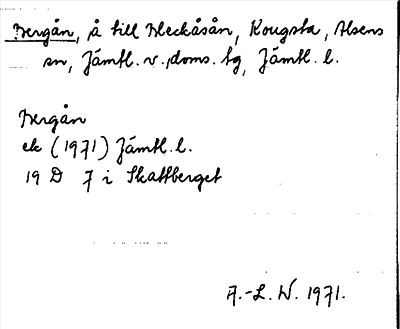 Bergån, å till Bleckåsån, Kougsta, Alsens
sn, Jämtl. v. doms. tg, Jämtl. l.
Bergån
ek (1971) Jämtl. l.
19 D 7 i Skattberget
A.-L. W. 1971.